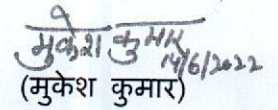 मुकेश कुमार
14/6/2022
(मुकेश कुमार)